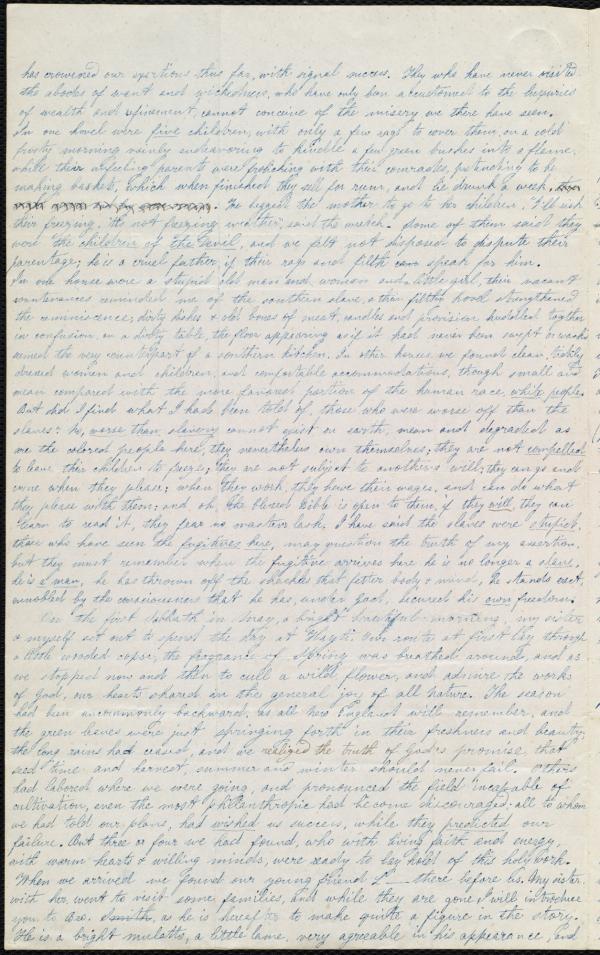 has crowned our exertions thus far, with signal success. They who have never visited
the abodes of want and wickedness, who have only been accustomed to the luxuries
of wealth and refinement, cannot conceive of the misery we there have seen.
In one hovel were five children, with only a few rags to cover them, on a cold
frosty morning vainly endeavoring to kindle a few green bushes into a flame,
while their unfeeling parents were frolicking with their comrades, pretending to be
making baskets, which when finished they sell for rum, and lie drunk a week,
I begged the mother to go to her children, "I'll risk
their freezing, it's not freezing weather," said the wretch. Some of them said they
were the children of the Devil, and we felt not disposed to dispute their
parentage; he is a cruel father, if their rags and filth can speak for him.
In one house were a stupid old man and woman and little girl, their vacant
countenances reminded me of the southern slave, & their filthy hovel strengthened
the reminiscence; dirty dishes & old bones of meat, candles and provision huddled together
in confusion, on a dirty table, the floor appearing as if it had never been swept or washed
seemed the very counterpart of a southern kitchen. In other houses we found clean, tidily
dressed women and children, and comfortable accommodations, though small and
mean compared with the more favored portion of the human race, white people.
But did I find what I had been told of, those who were worse off than the
slaves? No, worse than slavery cannot exist on earth, mean and degraded as
are the colored people here, they nevertheless own themselves; they are not compelled
to leave their children to freeze; they are not subject to another's will; they can go and
come when they please; when they work, they have their wages, and can do what
they please with them; and oh, the blessed Bible is open to them, if they will, they can
learn to read it, they fear no masters lash. I have said the slaves were stupid,
those who have seen the fugitives here, may question the truth of my assertion,
but they must remember when the fugitive arrives here he is no longer a slave,
he is a man, he has thrown off the shackles that fetter body & mind, he stands erect,
ennobled by the consciousness that he has, under God, secured his own freedom.
On the first Sabbath in May, a bright beautiful morning, my sister
& myself set out to spend the day at Hayti. Our route at first lay through
a little wooded copse, the fragrance of Spring was breathed around, and as
we stopped now and then to cull a wild flower, and admire the works
of God, our hearts shared in the general joy of all nature. The season
had been uncommonly backward, as all New England will remember, and
the green leaves were just springing forth in their freshness and beauty;
the long rains had ceased, and we realized the truth of God's promise that
seed time, and harvest, summer and winter should never fail. Others
had labored where we were going, and pronounced the field incapable of
cultivation, even the most philanthropic had become discouraged; all to whom
we had told our plans, had wished us success, while they predicted our
failure. But three or four we had found, who with living faith and energy,
with warm hearts & willing minds, were ready to lay hold of this holy work.
When we arrived we found our young friend L— there before us. My sister
with her went to visit some families, and while they are gone, I will introduce
you to Geo. Smith, as he is hereafter to make quite a figure in the story.
He is a bright mulatto, a little lame, very agreeable in his appearance, and